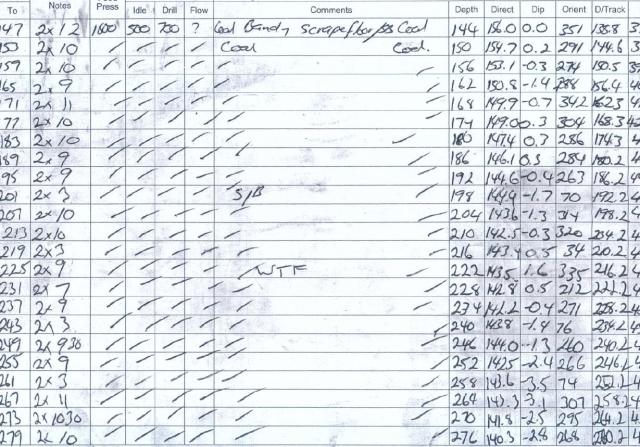 To Notes Press Idle Drill Flow Comments Depth Direct Dip Orient D/Track
147 2x12 1800 500 700 ? Coal Bandy scrapefloor Coal 144 156.0 0.0 351 138.8
153 2x10 Coal Coal. 150 154.7 0.2 291 144.6
159 2x10 156 153.1 -0.3 274 150.5
165 2x9 162 150.8 -1.4 156.4
171 2x11 168 149.9 -0.7 342 162.3
177 2x10 174 149.0 0.3 304 168.3
183 2x10 180 147.4 0.3 286 174.3
189 2x9 186 146.1 0.5 284 180.2
195 2x9 192 144.6 -0.4 263 186.2
201 2x3 S/B 198 144.9 -1.7 70 192.2
207 2x10 204 143.6 -1.3 314 198.2
213 2x10 210 142.5 -0.3 320 204.2
219 2x3 216 143.4 0.5 34 210.2
225 2x9 WTF 222 143.5 1.6 335 216.2
231 2x7 228 142.8 0.5 212 222.2
237 2x9 234 141.2 -0.4 271 228.2
243 2x3 240 143.8 -1.4 76 234.2
249 2x9 30 246 144.0 -1.3 260 240.2
255 2x9 252 142.5 -2.4 266 246.2
261 2x3 258 143.6 -3.5 74 252.2
267 2x11 264 143.3 307 258.2
273 2x10 30 270 141.8 -2.5 295 264.2
279 2x10 276 140.3 -2.8 268 270.2